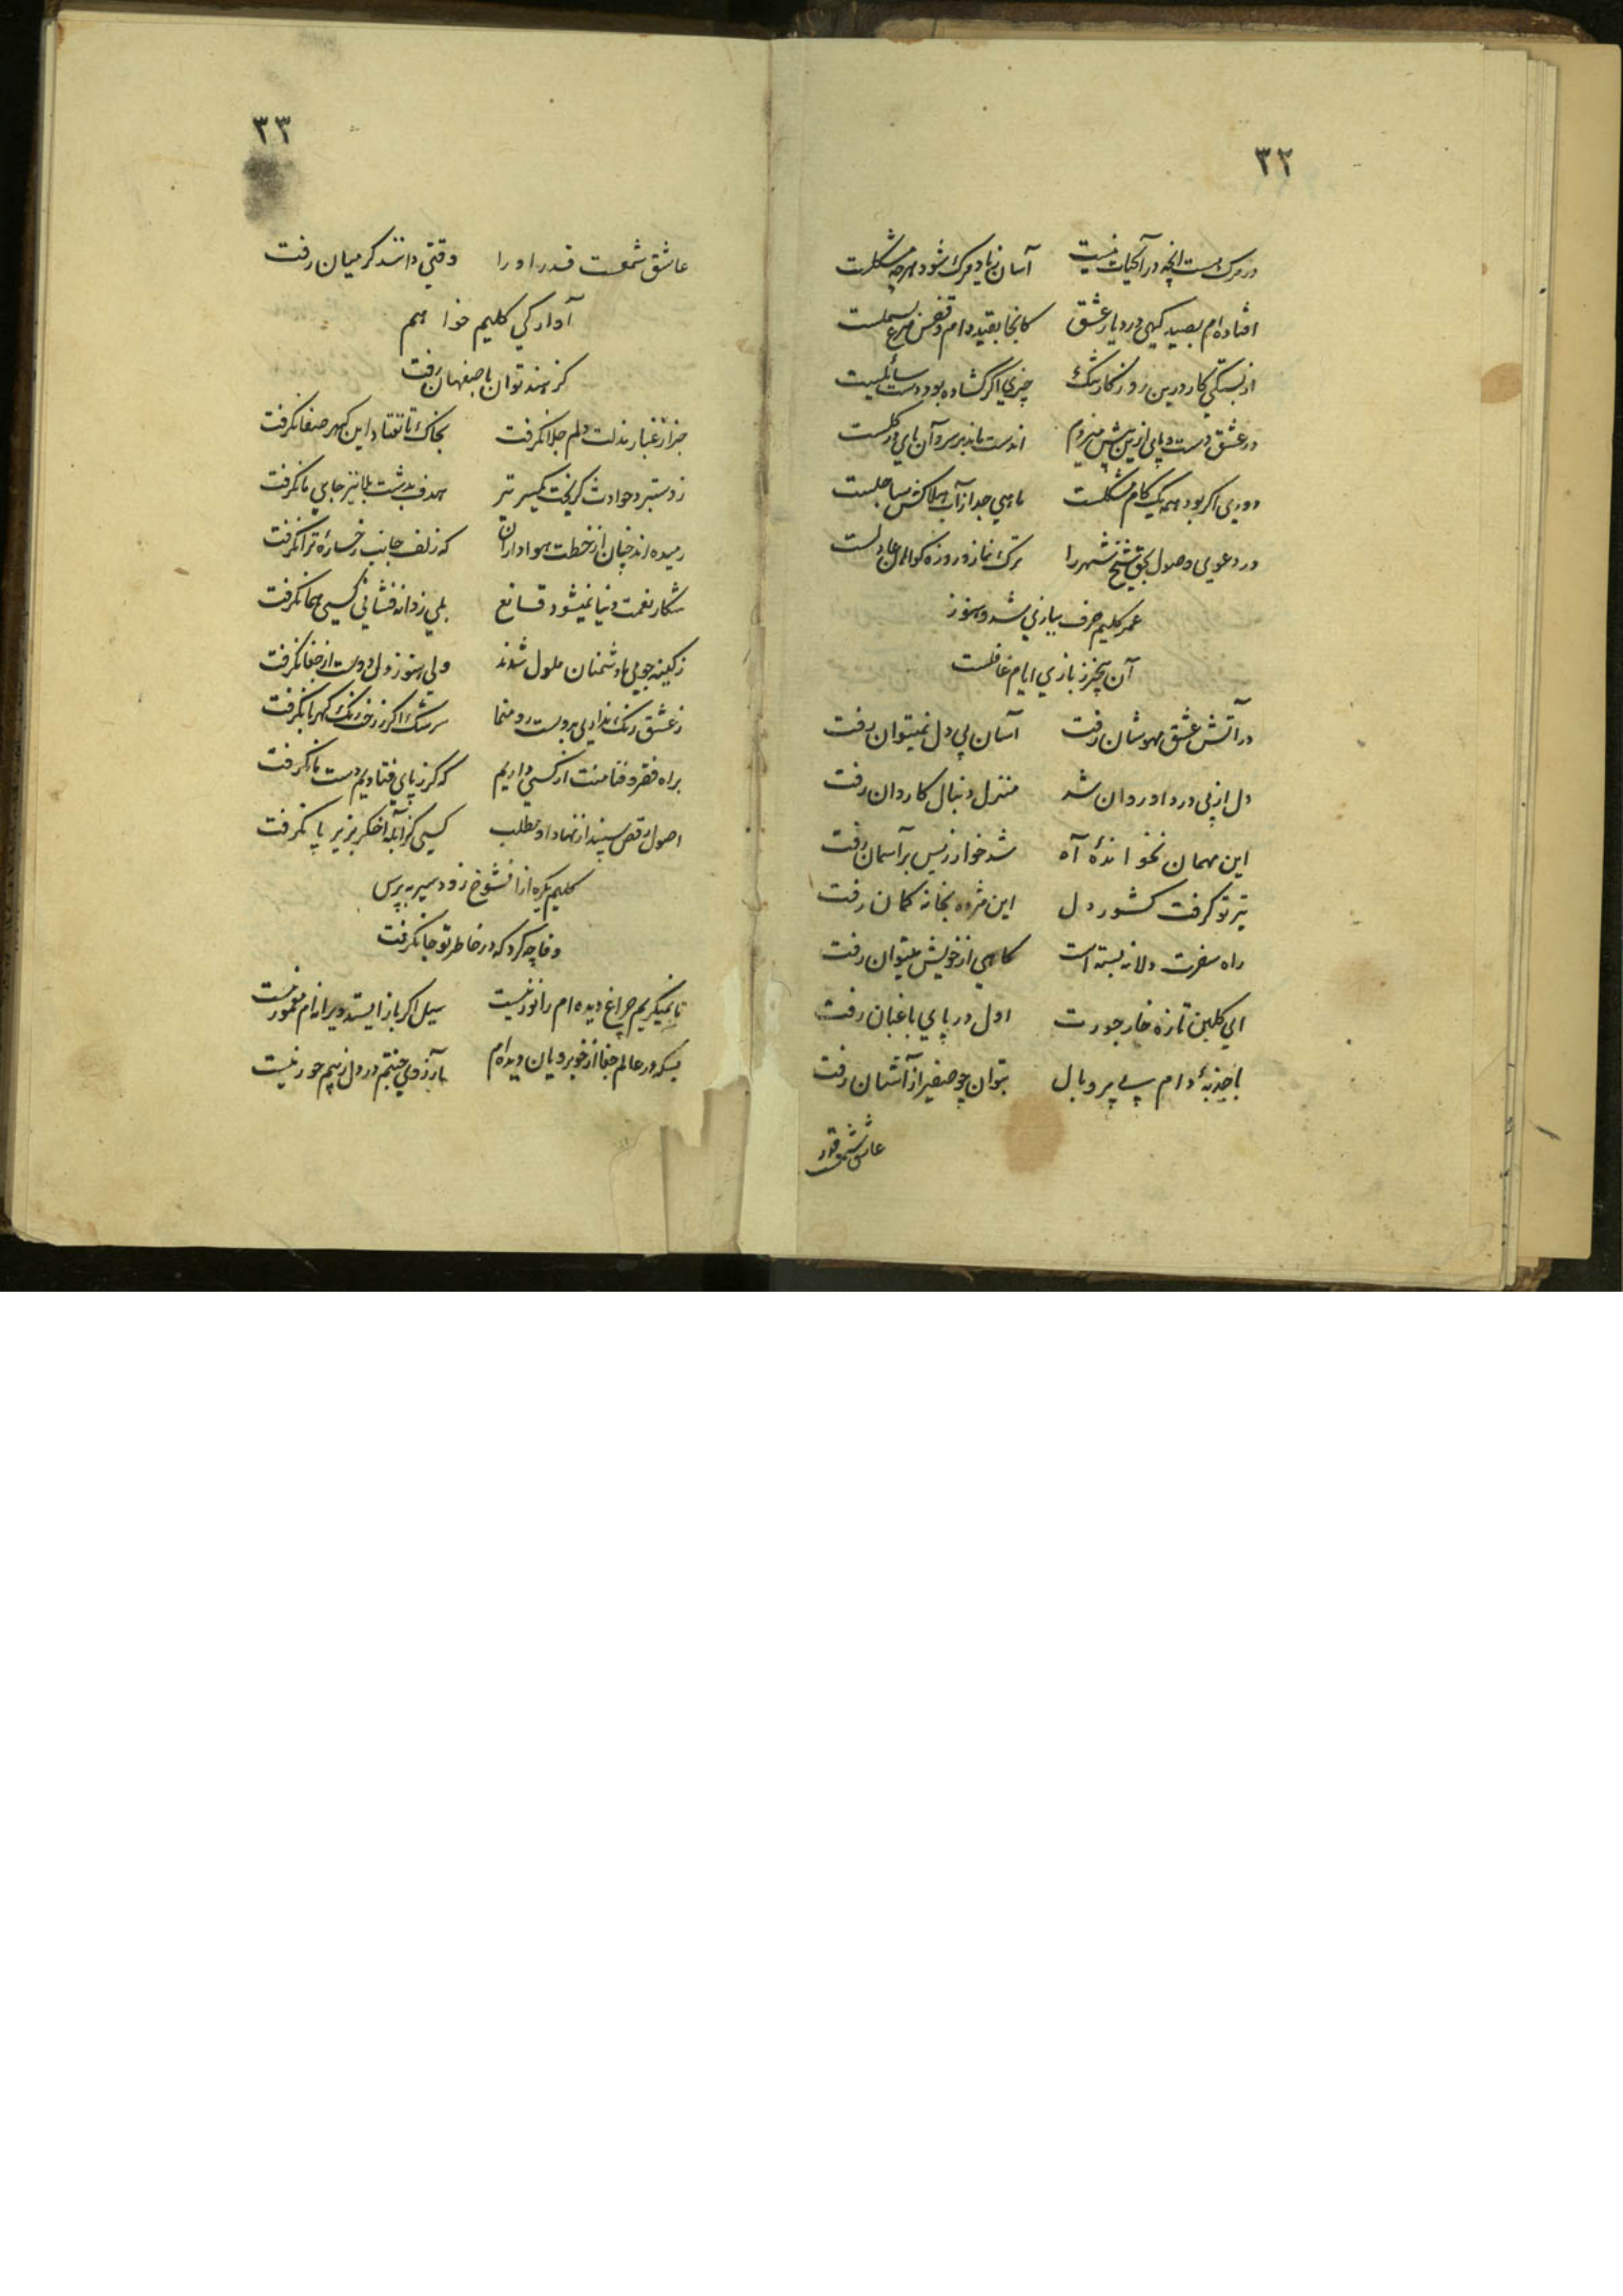 ۳۲
در مرک هست انچه در آبحیات نیست آسان ز یاد مرک شود هرچه مشکلست
افتاده ام بصید کهی در دیار عشق کانجا بقید دام و قفس مرغ بسملست
از بستکی کار درین روزکار تنک چیزی اکر کشاده بود دست سائلیست
در عشق دست و پای ازین بیش میزدم اندست ماند بر سر و آن پای در کلست
دوری اکر بود همه یک کام مشکلست ماهی جدا ز آب هلاکش بساحلست
در دعوی وصول بحق شیخ شهر را ترک نماز و روزه کواهان عادلست
عمر کلیم صرف ببازی شد و هنوز
آن بیخبر ز بازی ایام غافلست
در آتش عشق مهوشان رفت آسان پی دل نمیتوان رفت
دل از پی درد او روان شد منزل دنبال کاروان رفت
این مهمان نخواندهٔ آه شد خوار ز بس بر آسمان رفت
تیر تو کرفت کشور دل این مژده بخانه کمان رفت
راه سفرت دلا نه بسته است کاهی از خویش میتوان رفت
ای کلبن تازه خار جورت اول در پای باغبان رفت
با جذبهٔ دام بی پر و بال بتوان چو صفیر از آشیان رفت
عاشق شمعست قدر
۳۳
عاشق شمعست قدر او را وقتی دانند کز میان رفت
آوارکی کلیم خواهم
کز هند توان باصفهان رفت
جز از غبار مذلت دلم جلا نکرفت بخاک تا نفتاد این کهر صفا نکرفت
ز دستبرد حوادث کریخت یکسر تر هدف بدشت بلا نیز جای ما نکرفت
رمیده اند چنان از خطت هواداران که زلف جانب رخسارهٔ ترا نکرفت
شکار نعمت دنیا نمیشود قانع بلی ز دانه فشانی کسی هما نکرفت
ز کینه جویی ما دشمنان ملول شدند ولی هنوز دل دوست از جفا نکرفت
ز عشق رنک نداری بدوست رو منما سرشک اکر ز رخ رنک کهربا نکرفت
براه فقر و فنا منت از کسی داریم که کر ز پای فتادیم دست ما نکرفت
اصول رقص سپند از نهاد او مطلب کسی کز آبله اخکر بزیر پا نکرفت
کلیم یکره از انشوخ زود سیر بپرس
وفا چه کرد که در خاطر تو جا نکرفت
تا نمیکریم چراغ دیده ام را نور نیست سیل اکر باز ایستد ویرانه ام معمور نیست
بسکه در عالم جفا از خوبرویان دیده ام بآرزوی جنتم در دل ز بیم حور نیست